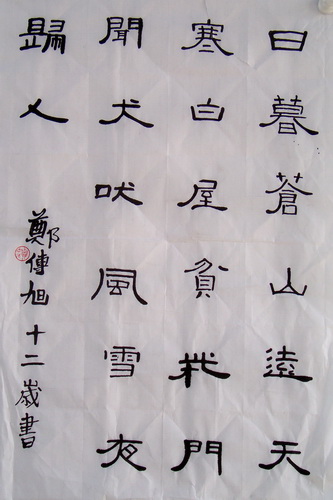 日暮蒼山遠天
寒白屋貧柴門
聞犬吠風雪夜
歸人
鄭傳旭十二歲書